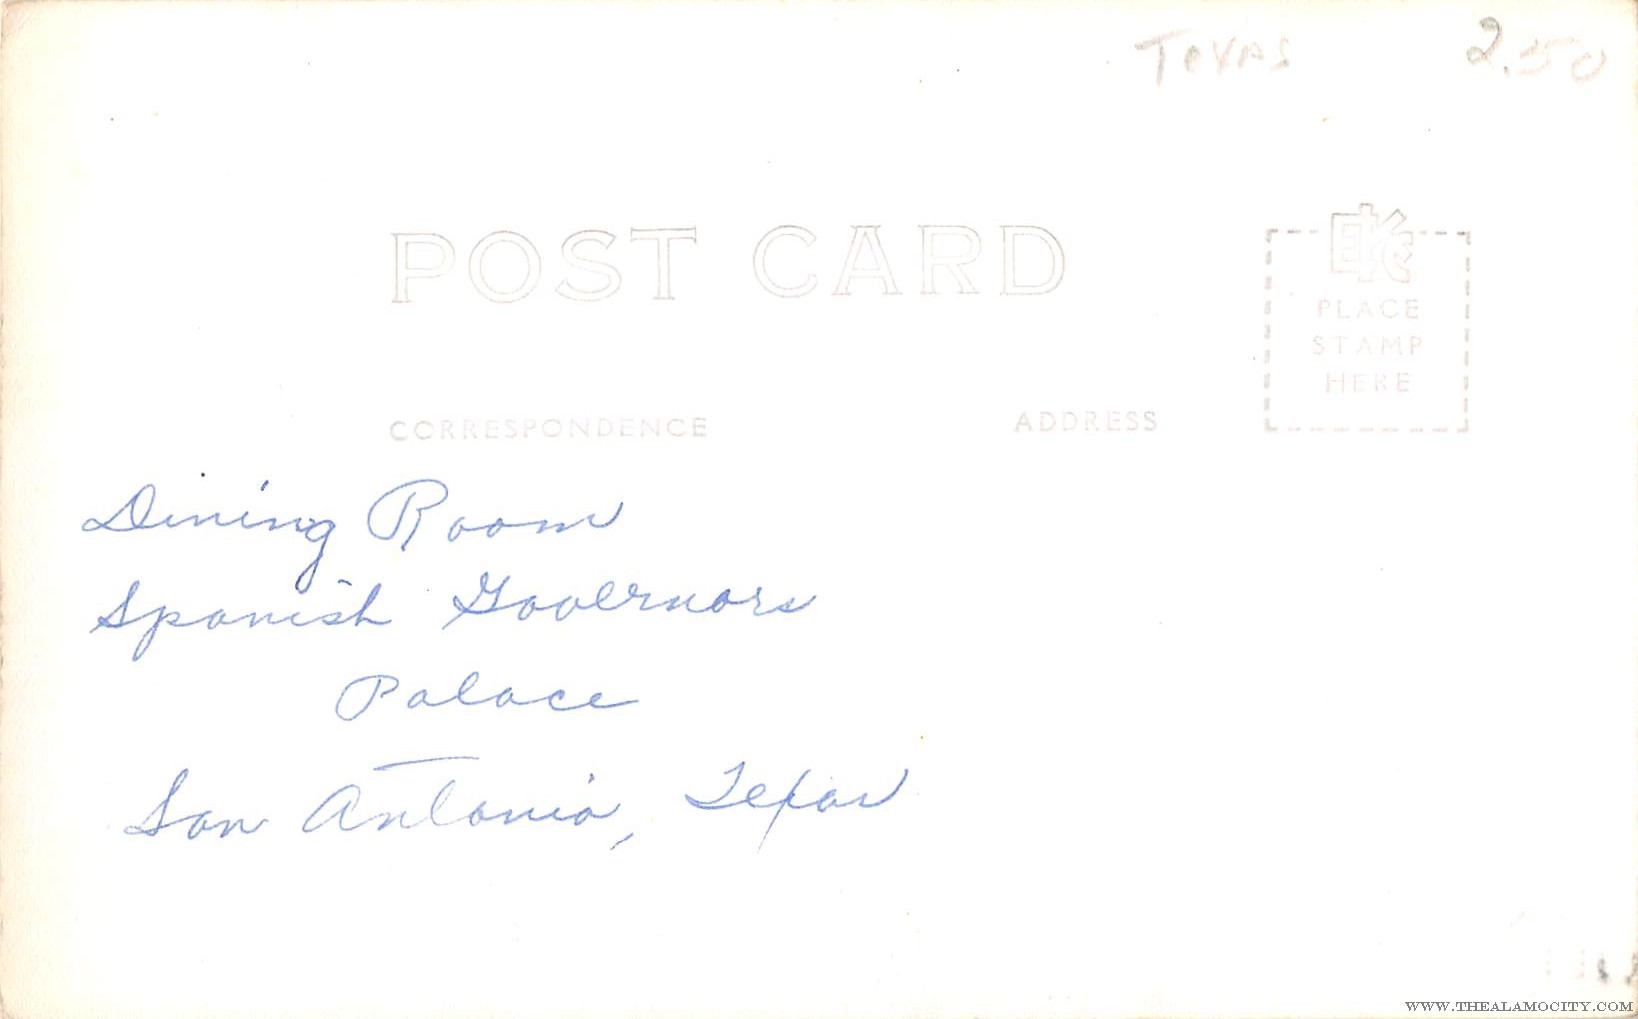 Texas 2.50
POST CARD
EKC
PLACE
STAMP
HERE
CORRESPONDENCE ADDRESS
Dining Room
Spanish Governors
Palace
San Antonio, Texas
WWW.THEALAMOCITY.COM